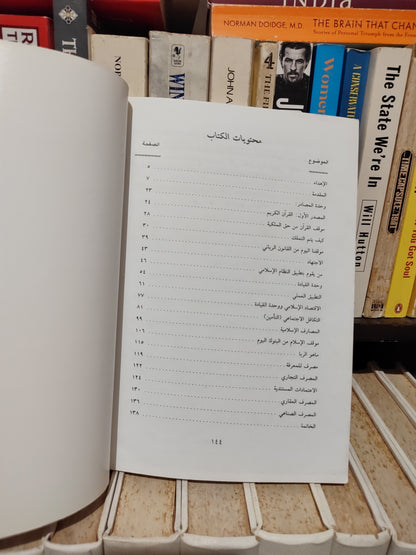 NORMAN DOIDGE, M.D. THE BRAIN THAT CHAN
Stories of Personal Triumph from the
INDIA
WIN
JOHN
Women
A CONSERVAT
The State We're In
Will Hutton
THE CAPSULE
You Got Soul
محتويات الكتاب
الموضوع الصفحة
الإهداء ٥
المقدمة ٧
وحدة المصادر ٢٣
المصدر الأول: القرآن الكريم ٢٤
موقف القرآن من حق الملكية ٢٨
كيف يتم التملك ٣٠
موقفنا اليوم من القانون الرباني ٣٩
الاجتهاد ٤٣
من يقوم بتطبيق النظام الإسلامي
وحدة القيادة ٥٤
التطبيق العملي
الاقتصاد الإسلامي ووحدة القيادة ٧٧
التكافل الاجتماعي (التأمين) ٨١
المصارف الإسلامية ٩٩
موقف الإسلام من البنوك اليوم ١٠٦
ماهو الربا ١١٥
مصرف للمعرفة ١١٩
المصرف التجاري
الاعتمادات المستندية ١٢٤
المصرف العقاري ١٣٠
المصرف الصناعي ١٣٦
الخاتمة ١٣٨
١٤٤